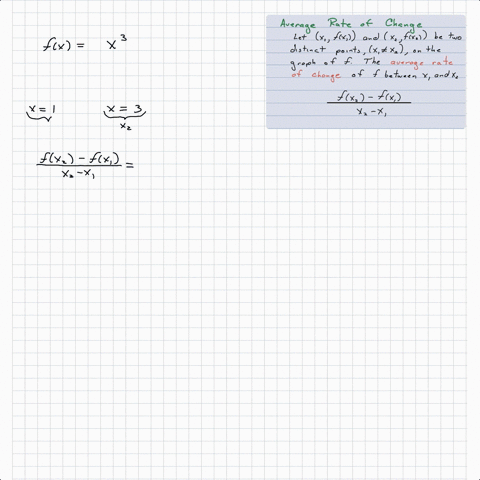 f(x) = x³
x = 1 x = 3
x₂
f(x₂) - f(x₁)
x₂ - x₁ =
Average Rate of Change
Let (x₁, f(x₁)) and (x₂, f(x₂)) be two
distinct points, (x₁ ≠ x₂), on the
graph of f. The average rate
of change of f between x₁ and x₂
f(x₂) - f(x₁)
x₂ - x₁